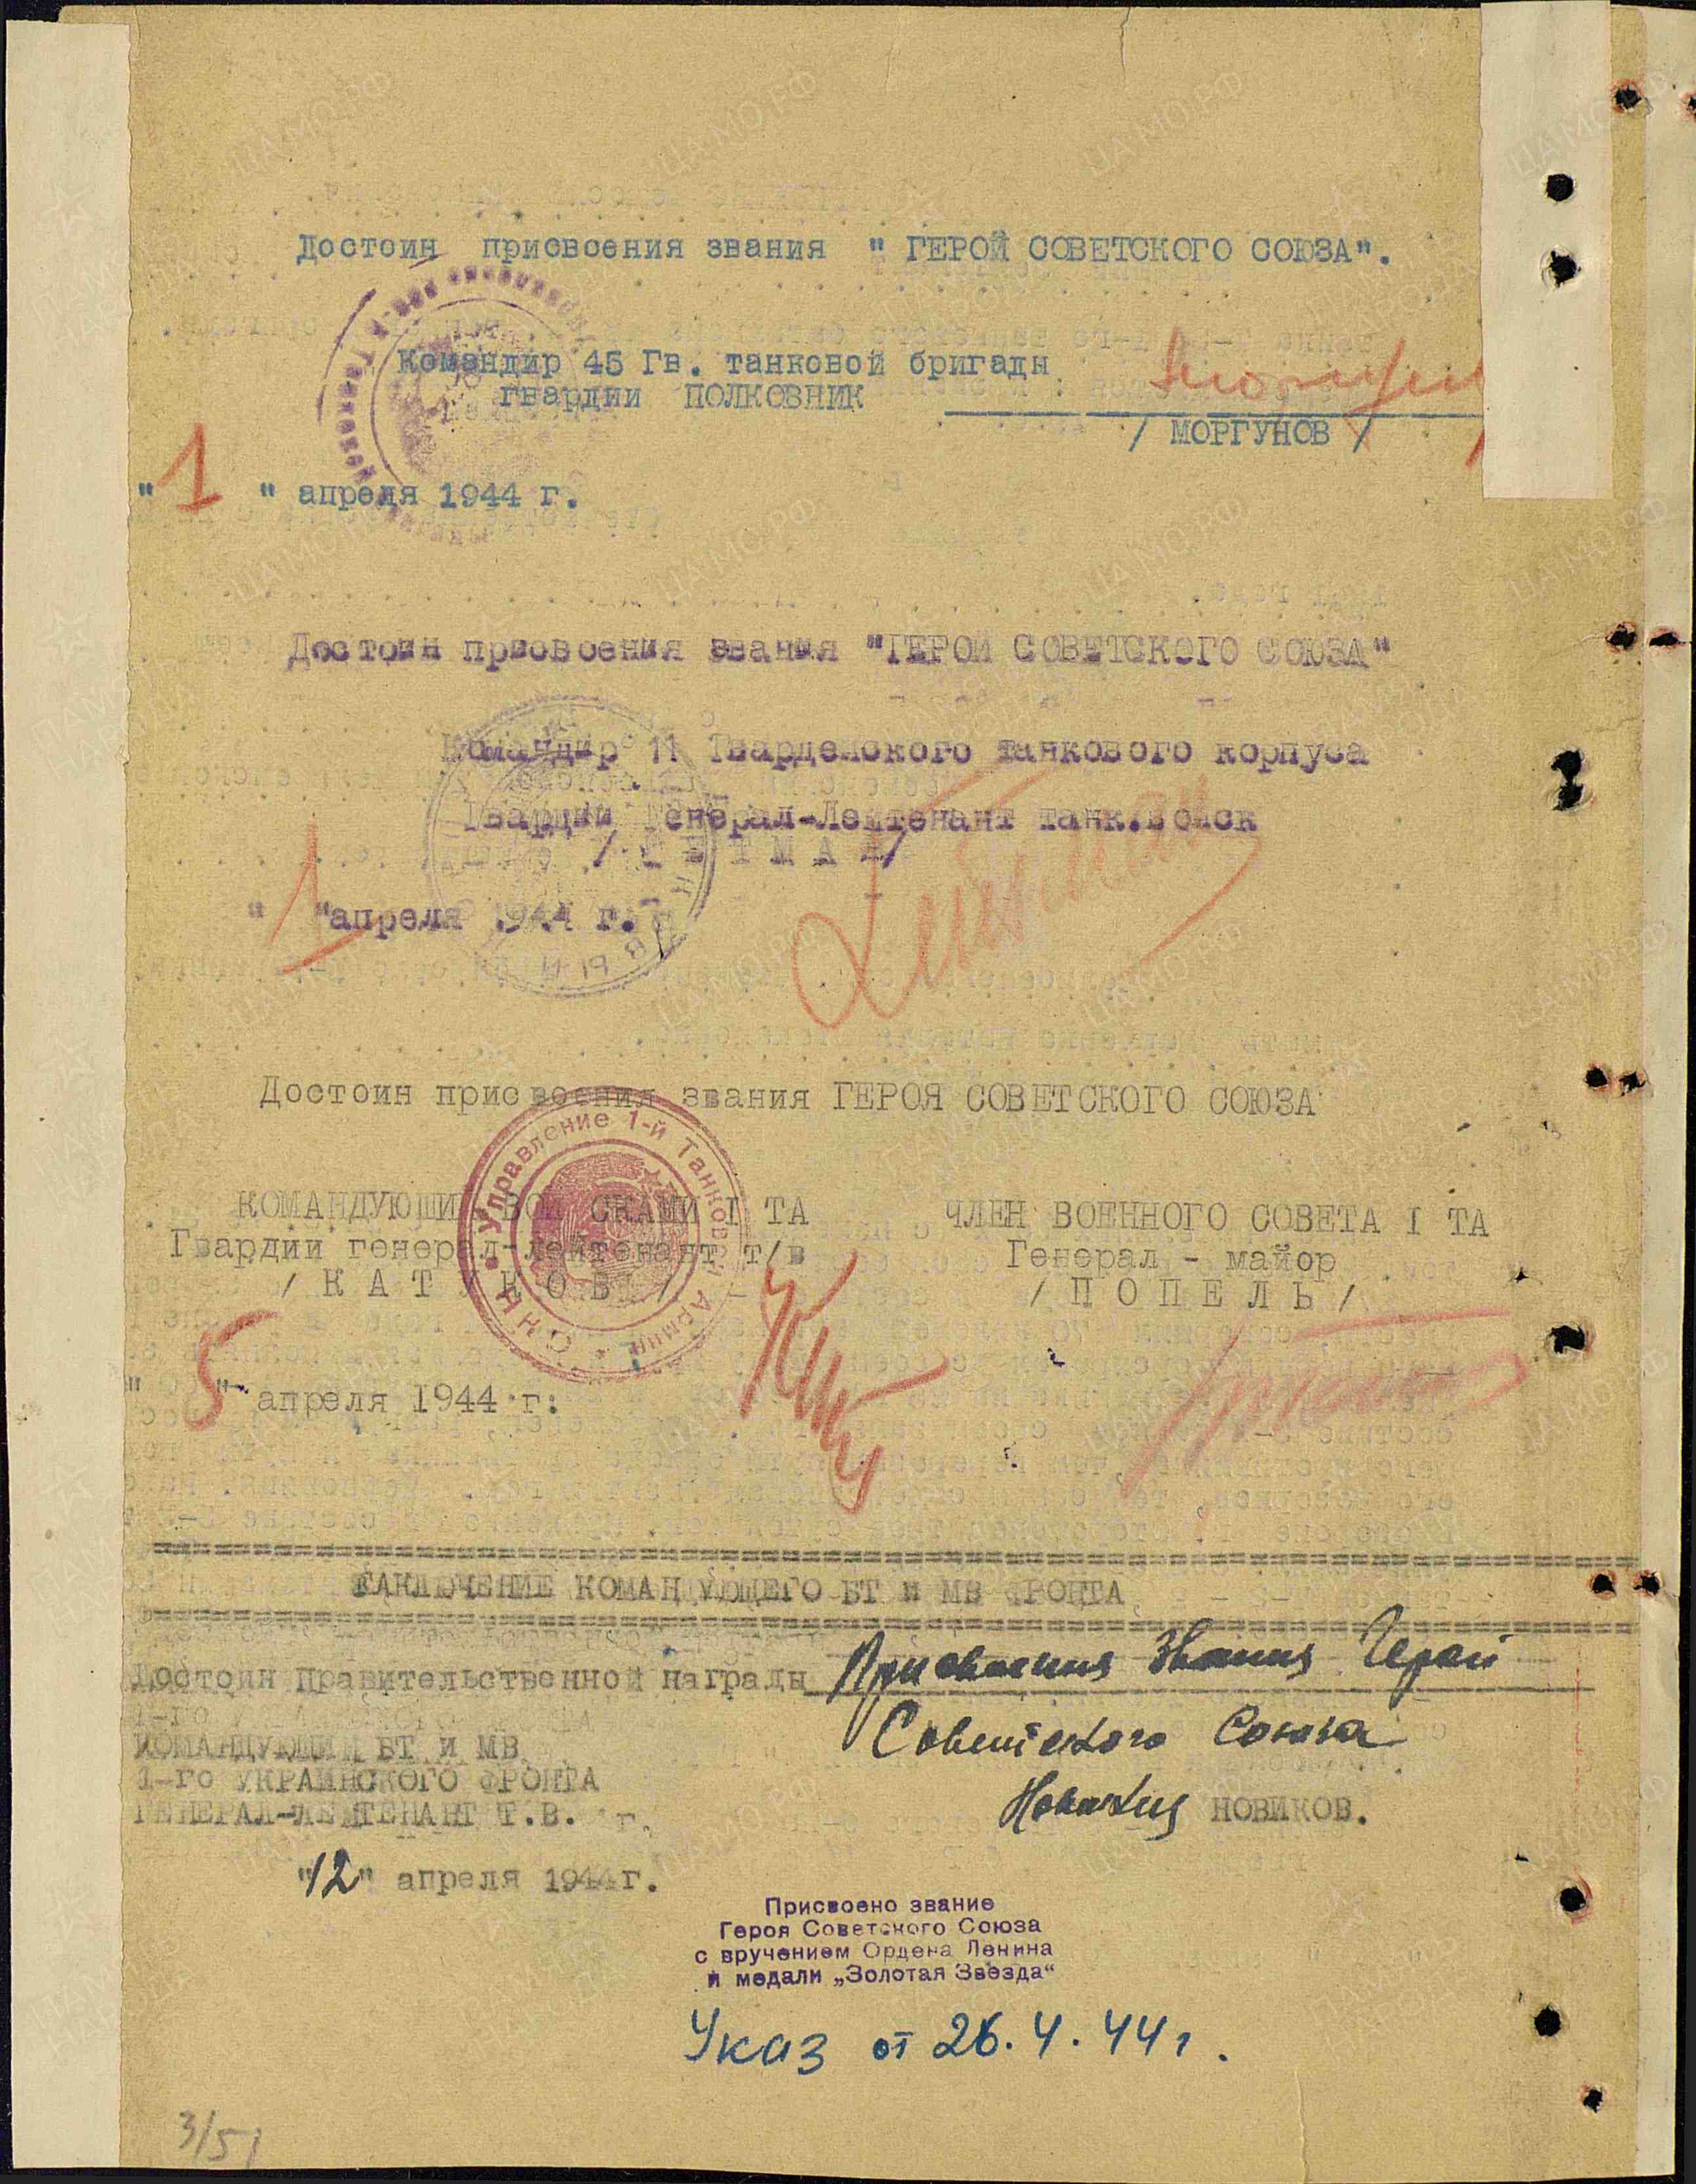 Достоин присвоения звания " ГЕРОЙ СОВЕТСКОГО СОЮЗА".
Командир 45 Гв. танковой бригады
гвардии ПОЛКОВНИК
/ МОРГУНОВ /
" 1 " апреля 1944 г.
Достоин присвоения звания "ГЕРОЙ СОВЕТСКОГО СОЮЗА"
Командир 11 Гвардейского танкового корпуса
Гвардии Генерал-Лейтенант танк.войск
/ Г Е Т М А Н /
" 1 "апреля 1944 г.
Достоин присвоения звания ГЕРОЯ СОВЕТСКОГО СОЮЗА
Управление 1-й Танковой Армии
С Н К
КОМАНДУЮЩИЙ ВОЙСКАМИ I ТА
Гвардии генерал-лейтенант т/в
/ К А Т У К О В /
ЧЛЕН ВОЕННОГО СОВЕТА I ТА
Генерал - майор
/ П О П Е Л Ь /
" 5 " апреля 1944 г:
ЗАКЛЮЧЕНИЕ КОМАНДУЮЩЕГО БТ и МВ ФРОНТА
Достоин Правительственной награды Присвоения звания Герой
Советского Союза
КОМАНДУЮЩИЙ БТ и МВ
1-го УКРАИНСКОГО ФРОНТА
ГЕНЕРАЛ-ЛЕЙТЕНАНТ Т.В.
НОВИКОВ.
"12" апреля 1944г.
Присвоено звание
Героя Советского Союза
с вручением Ордена Ленина
и медали „Золотая Звезда“
Указ от 26.4.44г.
3/51